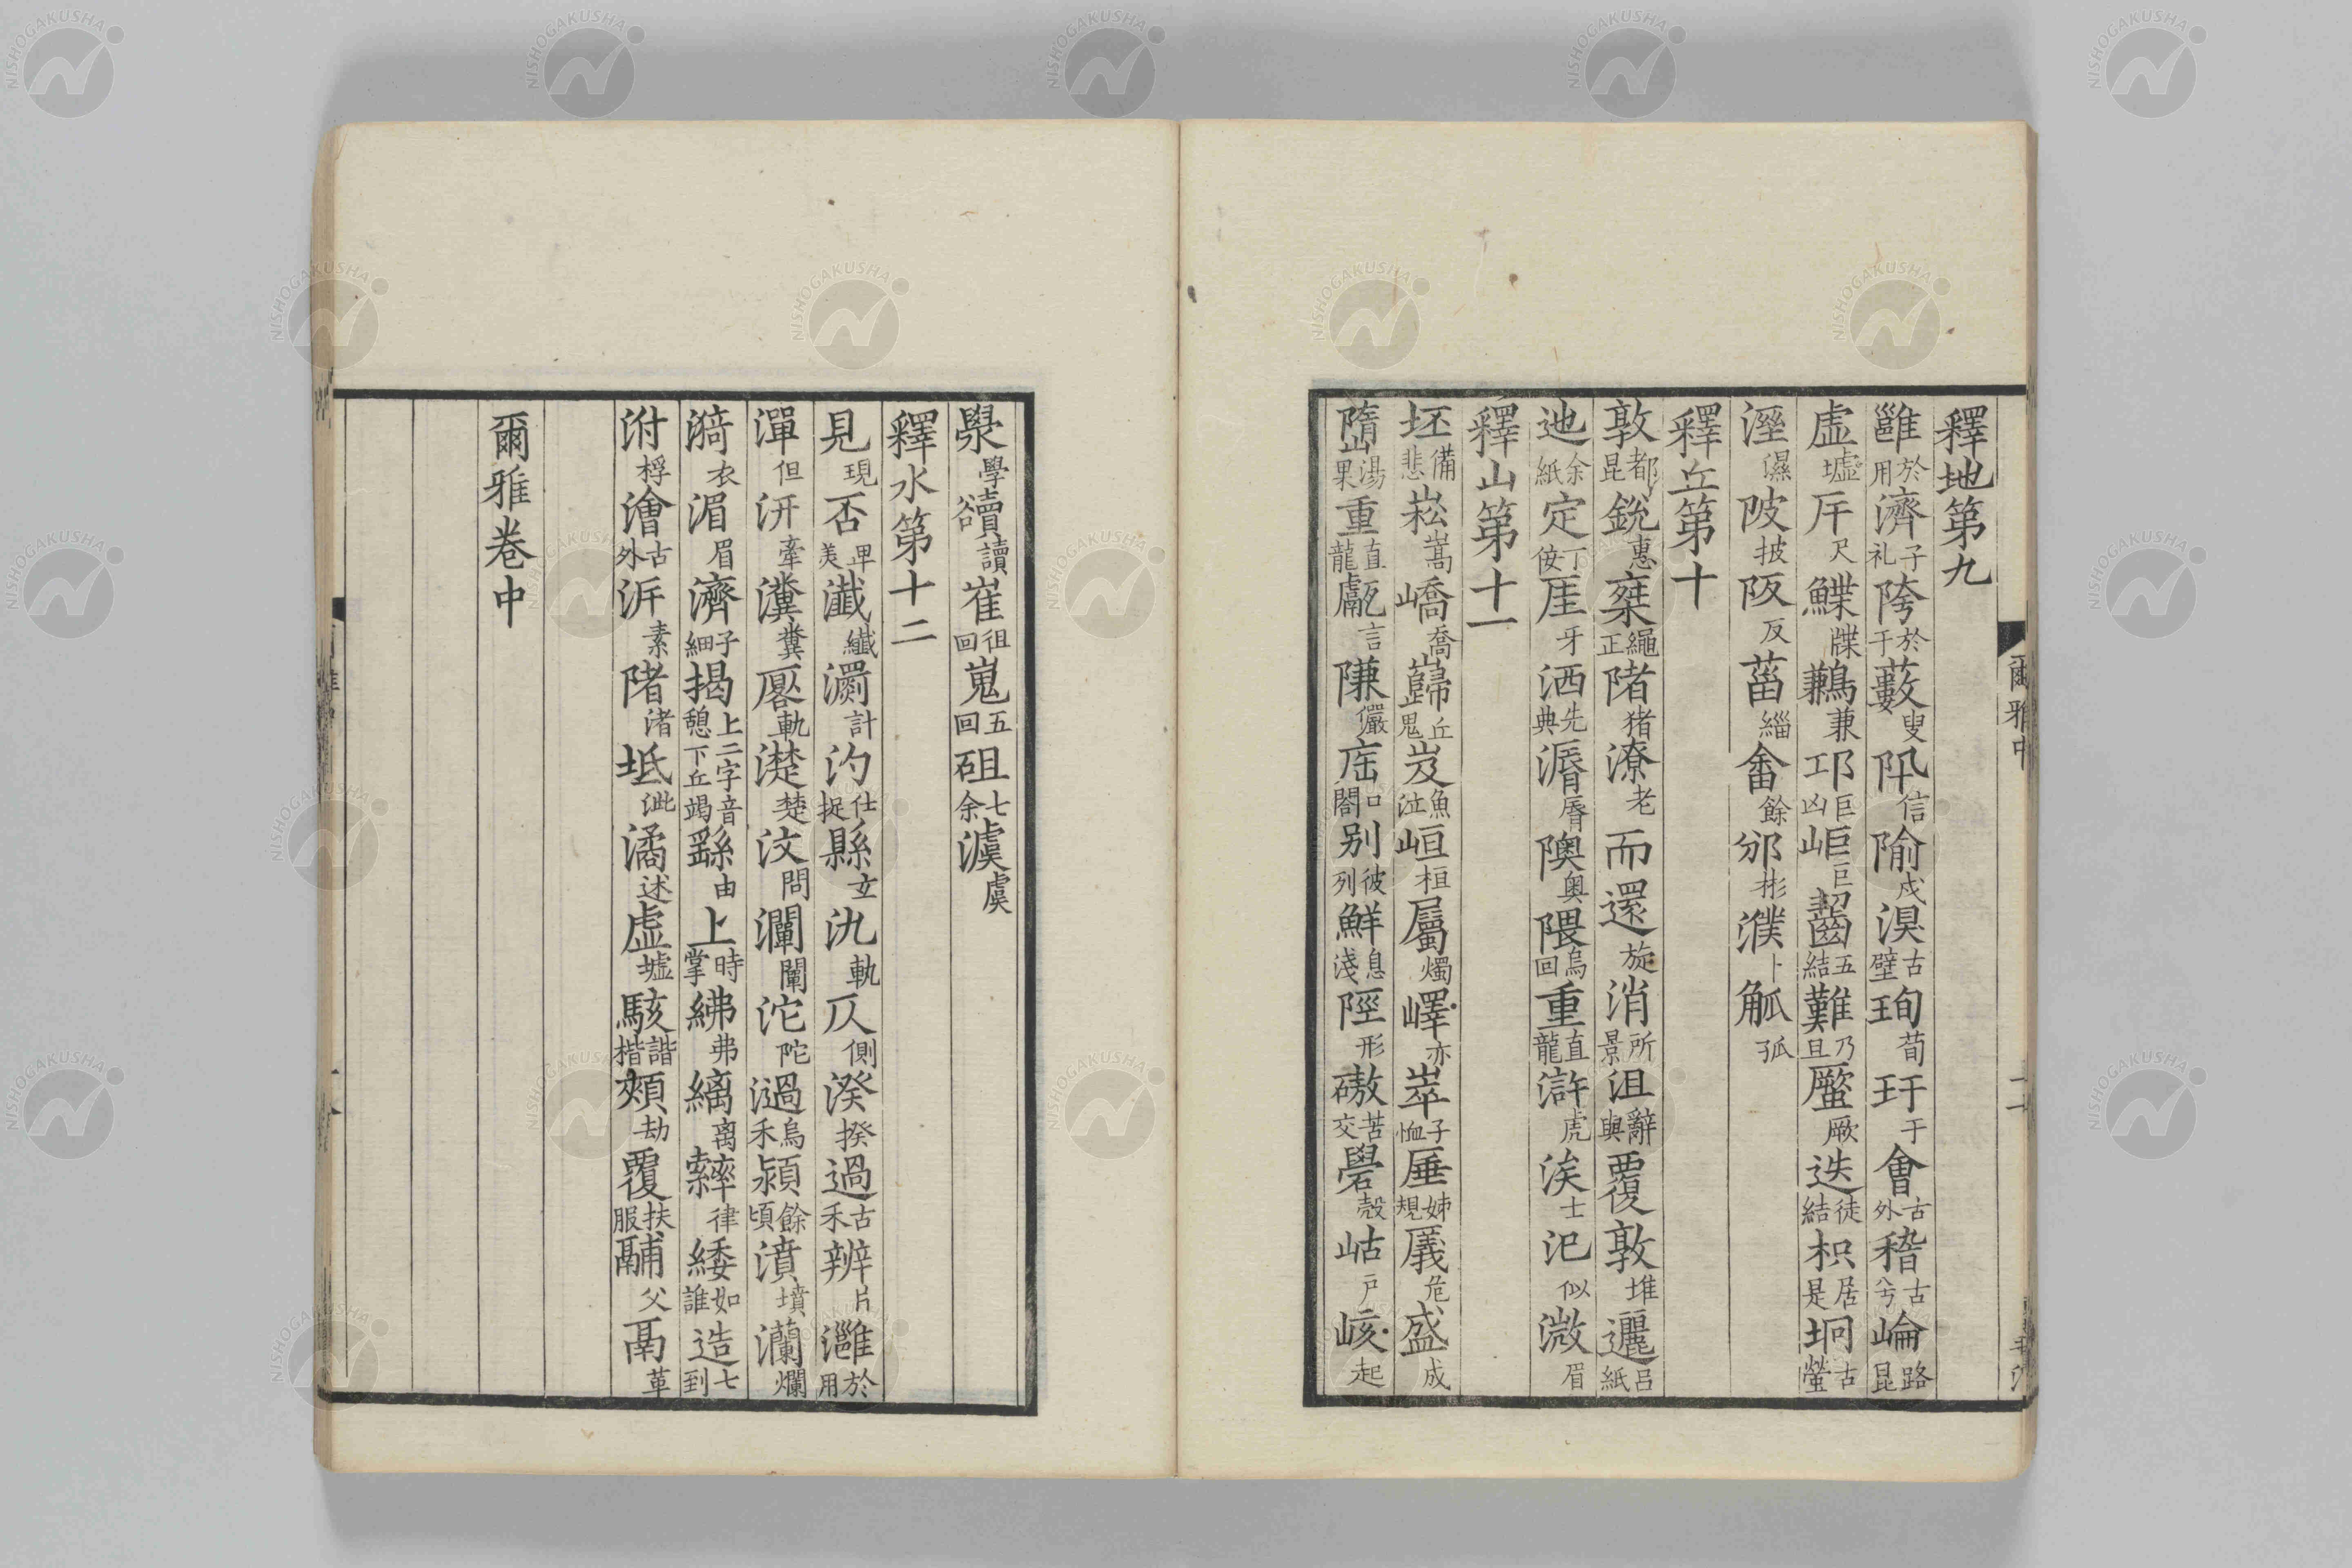 釋地第九
雝於用濟子礼陓於于藪叟阠信隃戍湨古壁珣荀玗于會古外稽古兮崘路昆
虛墟斥尺鰈牒鶼兼邛巨凶岠巨齧五結難乃旦蟨厥迭徒結枳居是坰古螢
溼濕陂披阪反菑緇畬餘邠彬濮卜觚孤
釋丘第十
敦都昆銳惠椉繩正陼猪潦老而還旋消所景沮辭與覆敦堆邐呂紙
迆余紙定丁佞厓牙洒先典漘脣隩奧隈烏回重直龍滸虎涘士汜似溦眉
釋山第十一
坯備悲崧嵩嶠喬巋丘鬼岌魚泣峘桓屬燭嶧亦崒子恤厜姊規㕒危盛成
隋湯果重直龍甗言隒儼㕎口閤別彼列鮮息淺陘形磝苦交礐殼岵戶峐起
爾雅中
澩學𧮾讀崔徂回嵬五回砠七余澞虞
釋水第十二
見現否畀美瀸纖瀱計汋仕捉縣玄氿軌仄側湀揆過古禾辨片灉於用
灛但汧牽瀵糞厬軌濋楚汶問瀾闌沱陀濄烏禾潁餘頃濆墳灡爛
漪衣湄眉濟子細揭上二字音憩下丘竭繇由上時掌紼弗縭离繂律緌如誰造七到
泭桴澮古外泝素陼渚坻泜潏述虛墟駭諧楷頰劫覆扶服鬴父鬲革
爾雅卷中